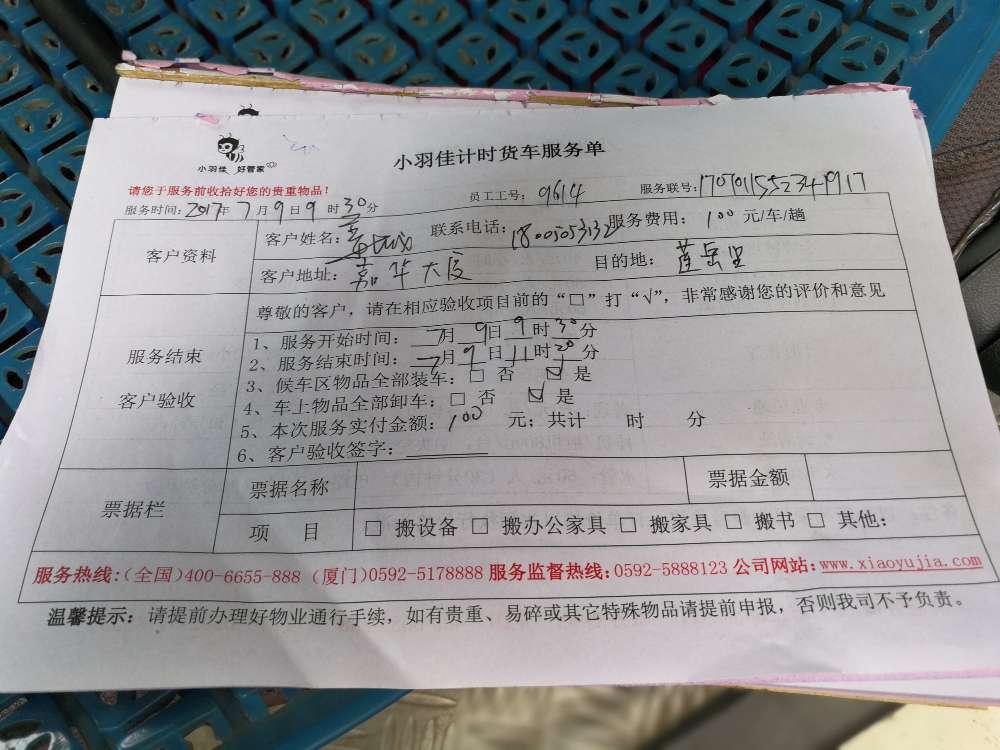 小羽佳 好管家
小羽佳计时货车服务单
请您于服务前收拾好您的贵重物品！
员工工号： 9614 服务联号：
服务时间：2017年 7月9日9时30分
客户资料
客户姓名： 联系电话： 服务费用： 100 元/车/趟
客户地址： 嘉华大厦 目的地： 莲岳里
服务结束
客户验收
尊敬的客户，请在相应验收项目前的“□”打“√”，非常感谢您的评价和意见
1、服务开始时间： 7月 9日 9时30分
2、服务结束时间： 7月 9日 11时20分
3、候车区物品全部装车：□ 否 ☑ 是
4、车上物品全部卸车：□ 否 ☑ 是
5、本次服务实付金额：100 元；共计 时 分
6、客户验收签字：
票据栏
票据名称 票据金额
项 目 □ 搬设备 □ 搬办公家具 □ 搬家具 □ 搬书 □ 其他：
服务热线：（全国）400-6655-888（厦门）0592-5178888 服务监督热线：0592-5888123 公司网站：www.xiaoyujia.com
温馨提示：请提前办理好物业通行手续，如有贵重、易碎或其它特殊物品请提前申报，否则我司不予负责。